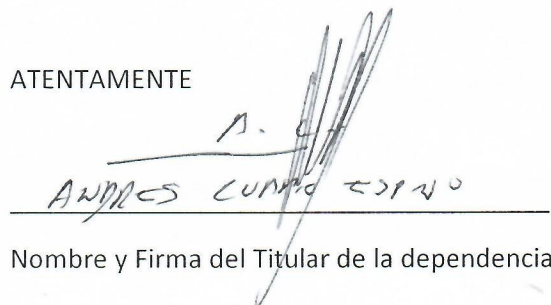 ATENTAMENTE
A.
ANDRES
Nombre y Firma del Titular de la dependencia